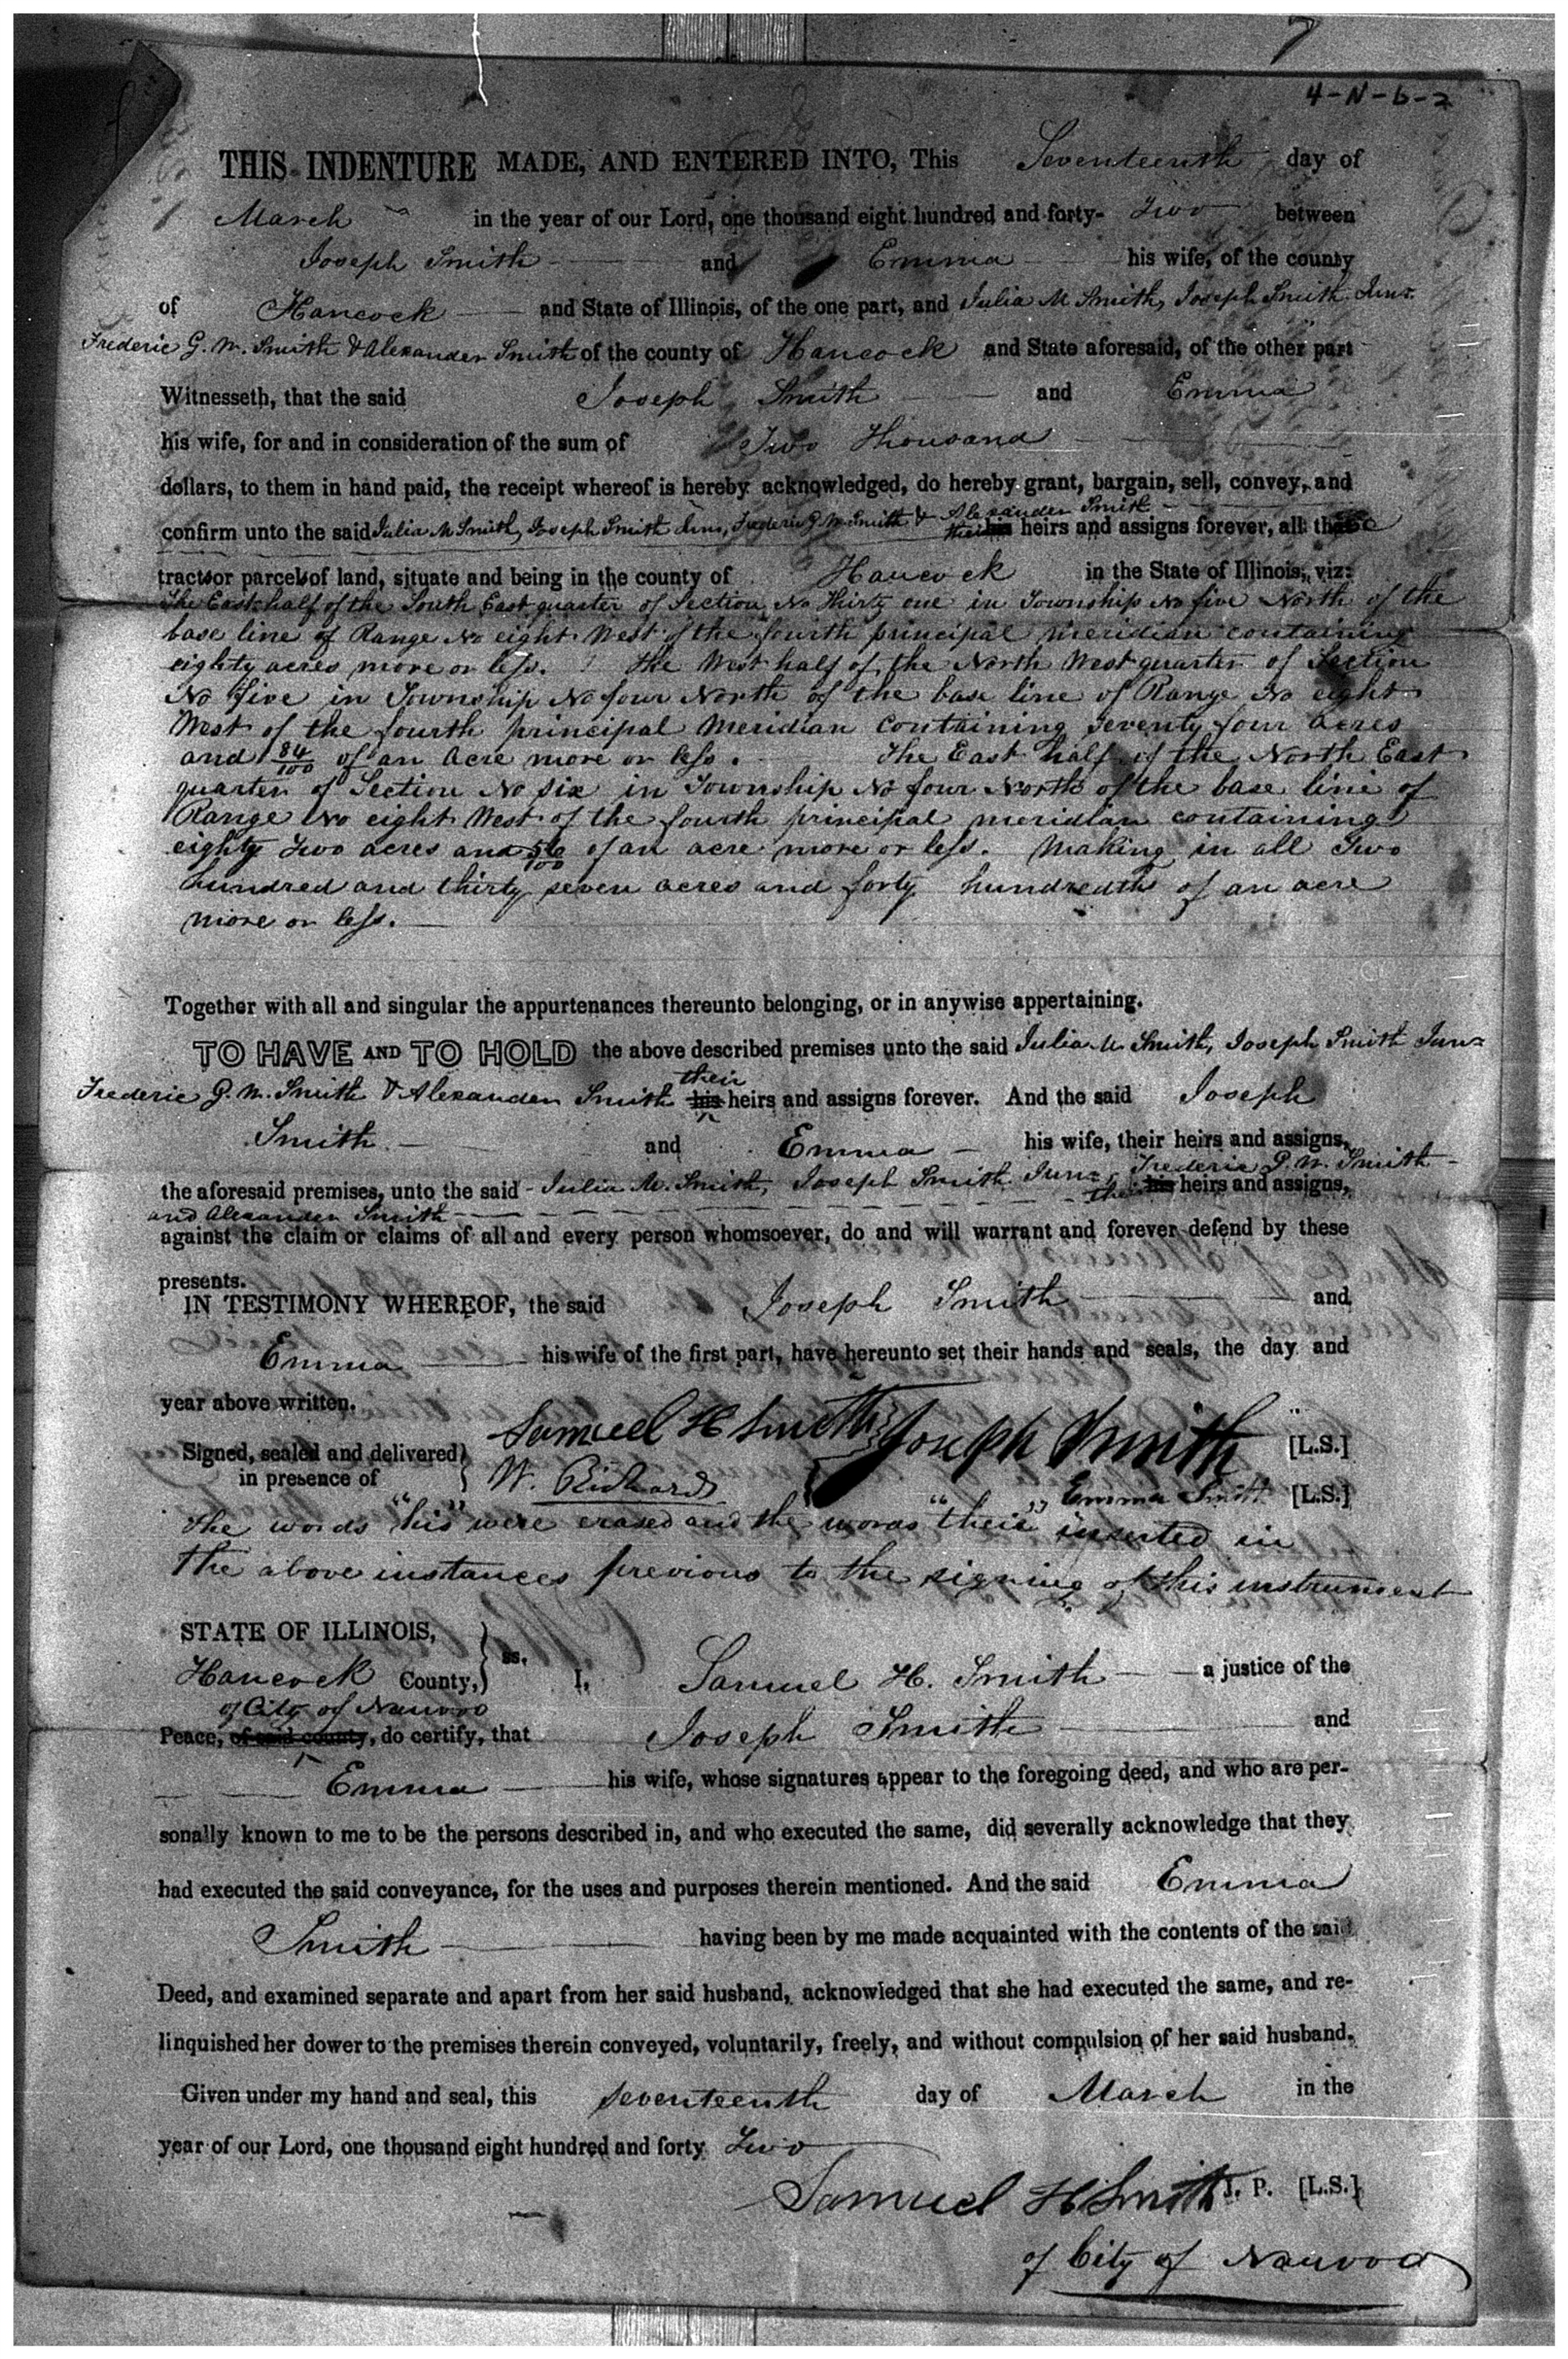 7
4-N-6-2
THIS INDENTURE MADE, AND ENTERED INTO, This Seventeenth day of
March in the year of our Lord, one thousand eight hundred and forty- Two between
Joseph Smith and Emma his wife, of the county
of Hancock and State of Illinois, of the one part, and Julia M Smith, Joseph Smith Junr.
Frederic G. W. Smith & Alexander Smith of the county of Hancock and State aforesaid, of the other part
Witnesseth, that the said Joseph Smith and Emma
his wife, for and in consideration of the sum of Two Thousand
dollars, to them in hand paid, the receipt whereof is hereby acknowledged, do hereby grant, bargain, sell, convey, and
confirm unto the said Julia M Smith, Joseph Smith Junr, Frederic G. W. Smith & Alexander Smith their his heirs and assigns forever, all those
tracts or parcels of land, situate and being in the county of Hancock in the State of Illinois, viz:
The East half of the South East quarter of Section No Thirty one in Township No five North of the
base line of Range No eight West of the fourth principal meridian containing
eighty acres more or less. The West half of the North West quarter of Section
No five in Township No four North of the base line of Range No eight
West of the fourth principal Meridian containing seventy four acres
and 84/100 of an acre more or less. The East half of the North East
quarter of Section No six in Township No four North of the base line of
Range No eight West of the fourth principal meridian containing
eighty Two acres and 56/100 of an acre more or less. Making in all Two
hundred and thirty seven acres and forty hundredths of an acre
more or less.
Together with all and singular the appurtenances thereunto belonging, or in anywise appertaining.
TO HAVE AND TO HOLD the above described premises unto the said Julia M. Smith, Joseph Smith Junr
Frederic G. W. Smith & Alexander Smith his their heirs and assigns forever. And the said Joseph
Smith and Emma his wife, their heirs and assigns,
the aforesaid premises, unto the said Julia M. Smith, Joseph Smith Junr, Frederic G. W. Smith
and Alexander Smith their his heirs and assigns,
against the claim or claims of all and every person whomsoever, do and will warrant and forever defend by these
presents.
IN TESTIMONY WHEREOF, the said Joseph Smith and
Emma his wife of the first part, have hereunto set their hands and seals, the day and
year above written.
Signed, sealed and delivered Samuel H Smith Joseph Smith [L.S.]
in presence of W. Richards Emma Smith [L.S.]
The words "his" were erased and the words "their" inserted in
the above instances previous to the signing of this instrument
STATE OF ILLINOIS,
Hancock County, ss. I, Samuel H. Smith a justice of the
of City of Nauvoo
Peace, of said county, do certify, that Joseph Smith and
Emma his wife, whose signatures appear to the foregoing deed, and who are per-
sonally known to me to be the persons described in, and who executed the same, did severally acknowledge that they
had executed the said conveyance, for the uses and purposes therein mentioned. And the said Emma
Smith having been by me made acquainted with the contents of the said
Deed, and examined separate and apart from her said husband, acknowledged that she had executed the same, and re-
linquished her dower to the premises therein conveyed, voluntarily, freely, and without compulsion of her said husband.
Given under my hand and seal, this seventeenth day of March in the
year of our Lord, one thousand eight hundred and forty Two
Samuel H Smith J. P. [L.S.]
of City of Nauvoo